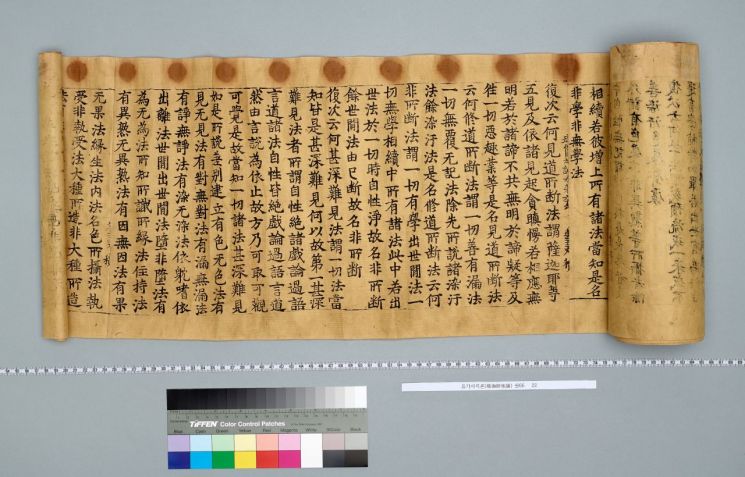 相續若彼增上所有諸法當知是名
非學非無學法
復次云何見道所斷法謂薩迦耶等
五見及依諸見起貪瞋慢若相應無
明若於諸諦不共無明於諦疑等及
往一切惡趣業等是名見道所斷法
云何修道所斷法謂一切善有漏法
一切無覆无記法除先所說諸染汙
法餘染汙法是名修道所斷法云何
非所斷法謂一切有學出世間法一
切無學相續中所有諸法此中若出
世法於一切時自性淨故名非所斷
餘世間法由已斷故名非所斷
復次云何甚深難見法謂一切法當
知皆是甚深難見何以故第一甚深
難見法者所謂自性絕諸戲論過語
言道諸法自性皆絕戲論過語言道
然由言說為依止故方乃可取可觀
可覺是故當知一切諸法甚深難見
如是所說差別建立有色无色法有
見无見法有對無對法有漏無漏法
有諍無諍法有染无染法依躭嗜依
出離法世間出世間法墮非墮法有
為无為法所知所識所緣法住持法
有異熟无異熟法有因無因法有果
无果法緣生法內法名色所攝法執
受非執受法大種所造非大種所造
유가사지론(瑜伽師地論) 권66 22
TIFFEN Color Control Patches
Blue Cyan Green Yellow Red Magenta White 3/Color Black